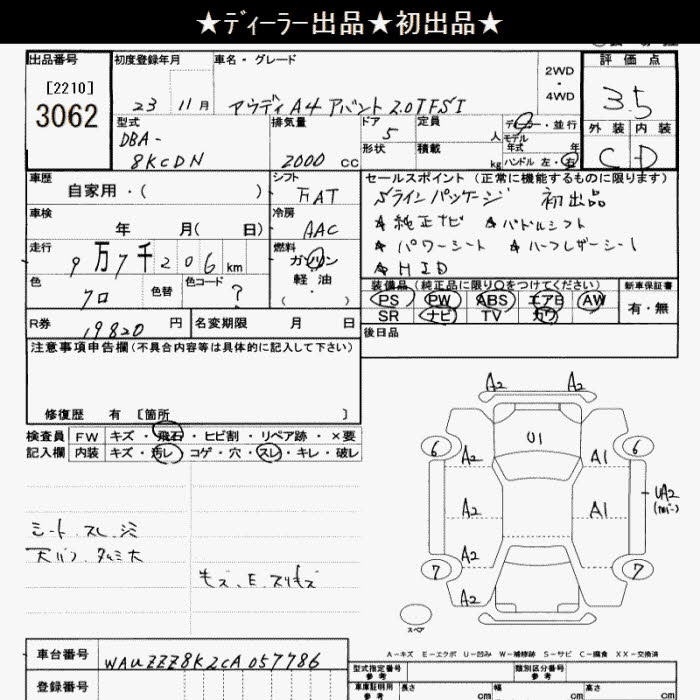 ★ディーラー出品★初出品★
出品番号
[2210]
3062
初度登録年月
23 11月
車名・グレード
アウディ A4 アバント 2.0TFSI
2WD
・
4WD
評価点
3.5
外装 内装
C D
型式
DBA-
8KCDN
排気量
2000 cc
ドア
5
形状
定員
人
積載
kg
ディーラー・並行
モデル
年式 年
ハンドル 左・右
車歴
自家用・( )
シフト
FAT
車検
年 月( 日)
冷房
AAC
走行
9万7千206km
燃料
ガソリン
軽油
・( )
色
クロ
色替
色コード
?
R券
19820 円
名変期限 月 日
セールスポイント (正常に機能するものに限ります)
Sラインパッケージ 初出品
★純正ナビ ★パドルシフト
★パワーシート ★ハーフレザーシート
★HID
装備品(純正品に限り○をつけてください)
PS PW ABS エアB AW
SR ナビ TV カワ
新車保証書
有・無
後日品
注意事項申告欄(不具合内容等は具体的に記入して下さい)
修復歴 有 [箇所 ]
検査員
記入欄
FW キズ・飛石・ヒビ割・リペア跡・×要
内装 キズ・汚レ・コゲ・穴・スレ・キレ・破レ
シート スレ シミ
天バリ タルミ大
キズ、E、スリキズ
A2 A2
U1
6 6
A2 A1
A2 A1
UA2
A2
7 7
A2
スペア
A-キズ E-エクボ U-凹み W-補修跡 S-サビ C-腐食 XX-交換済
車台番号
WAUZZZ8K2CA057786
登録番号
型式指定番号
参考
類別区分番号
参考
車庫証明用
参考
長さ cm
幅 cm
高さ cm